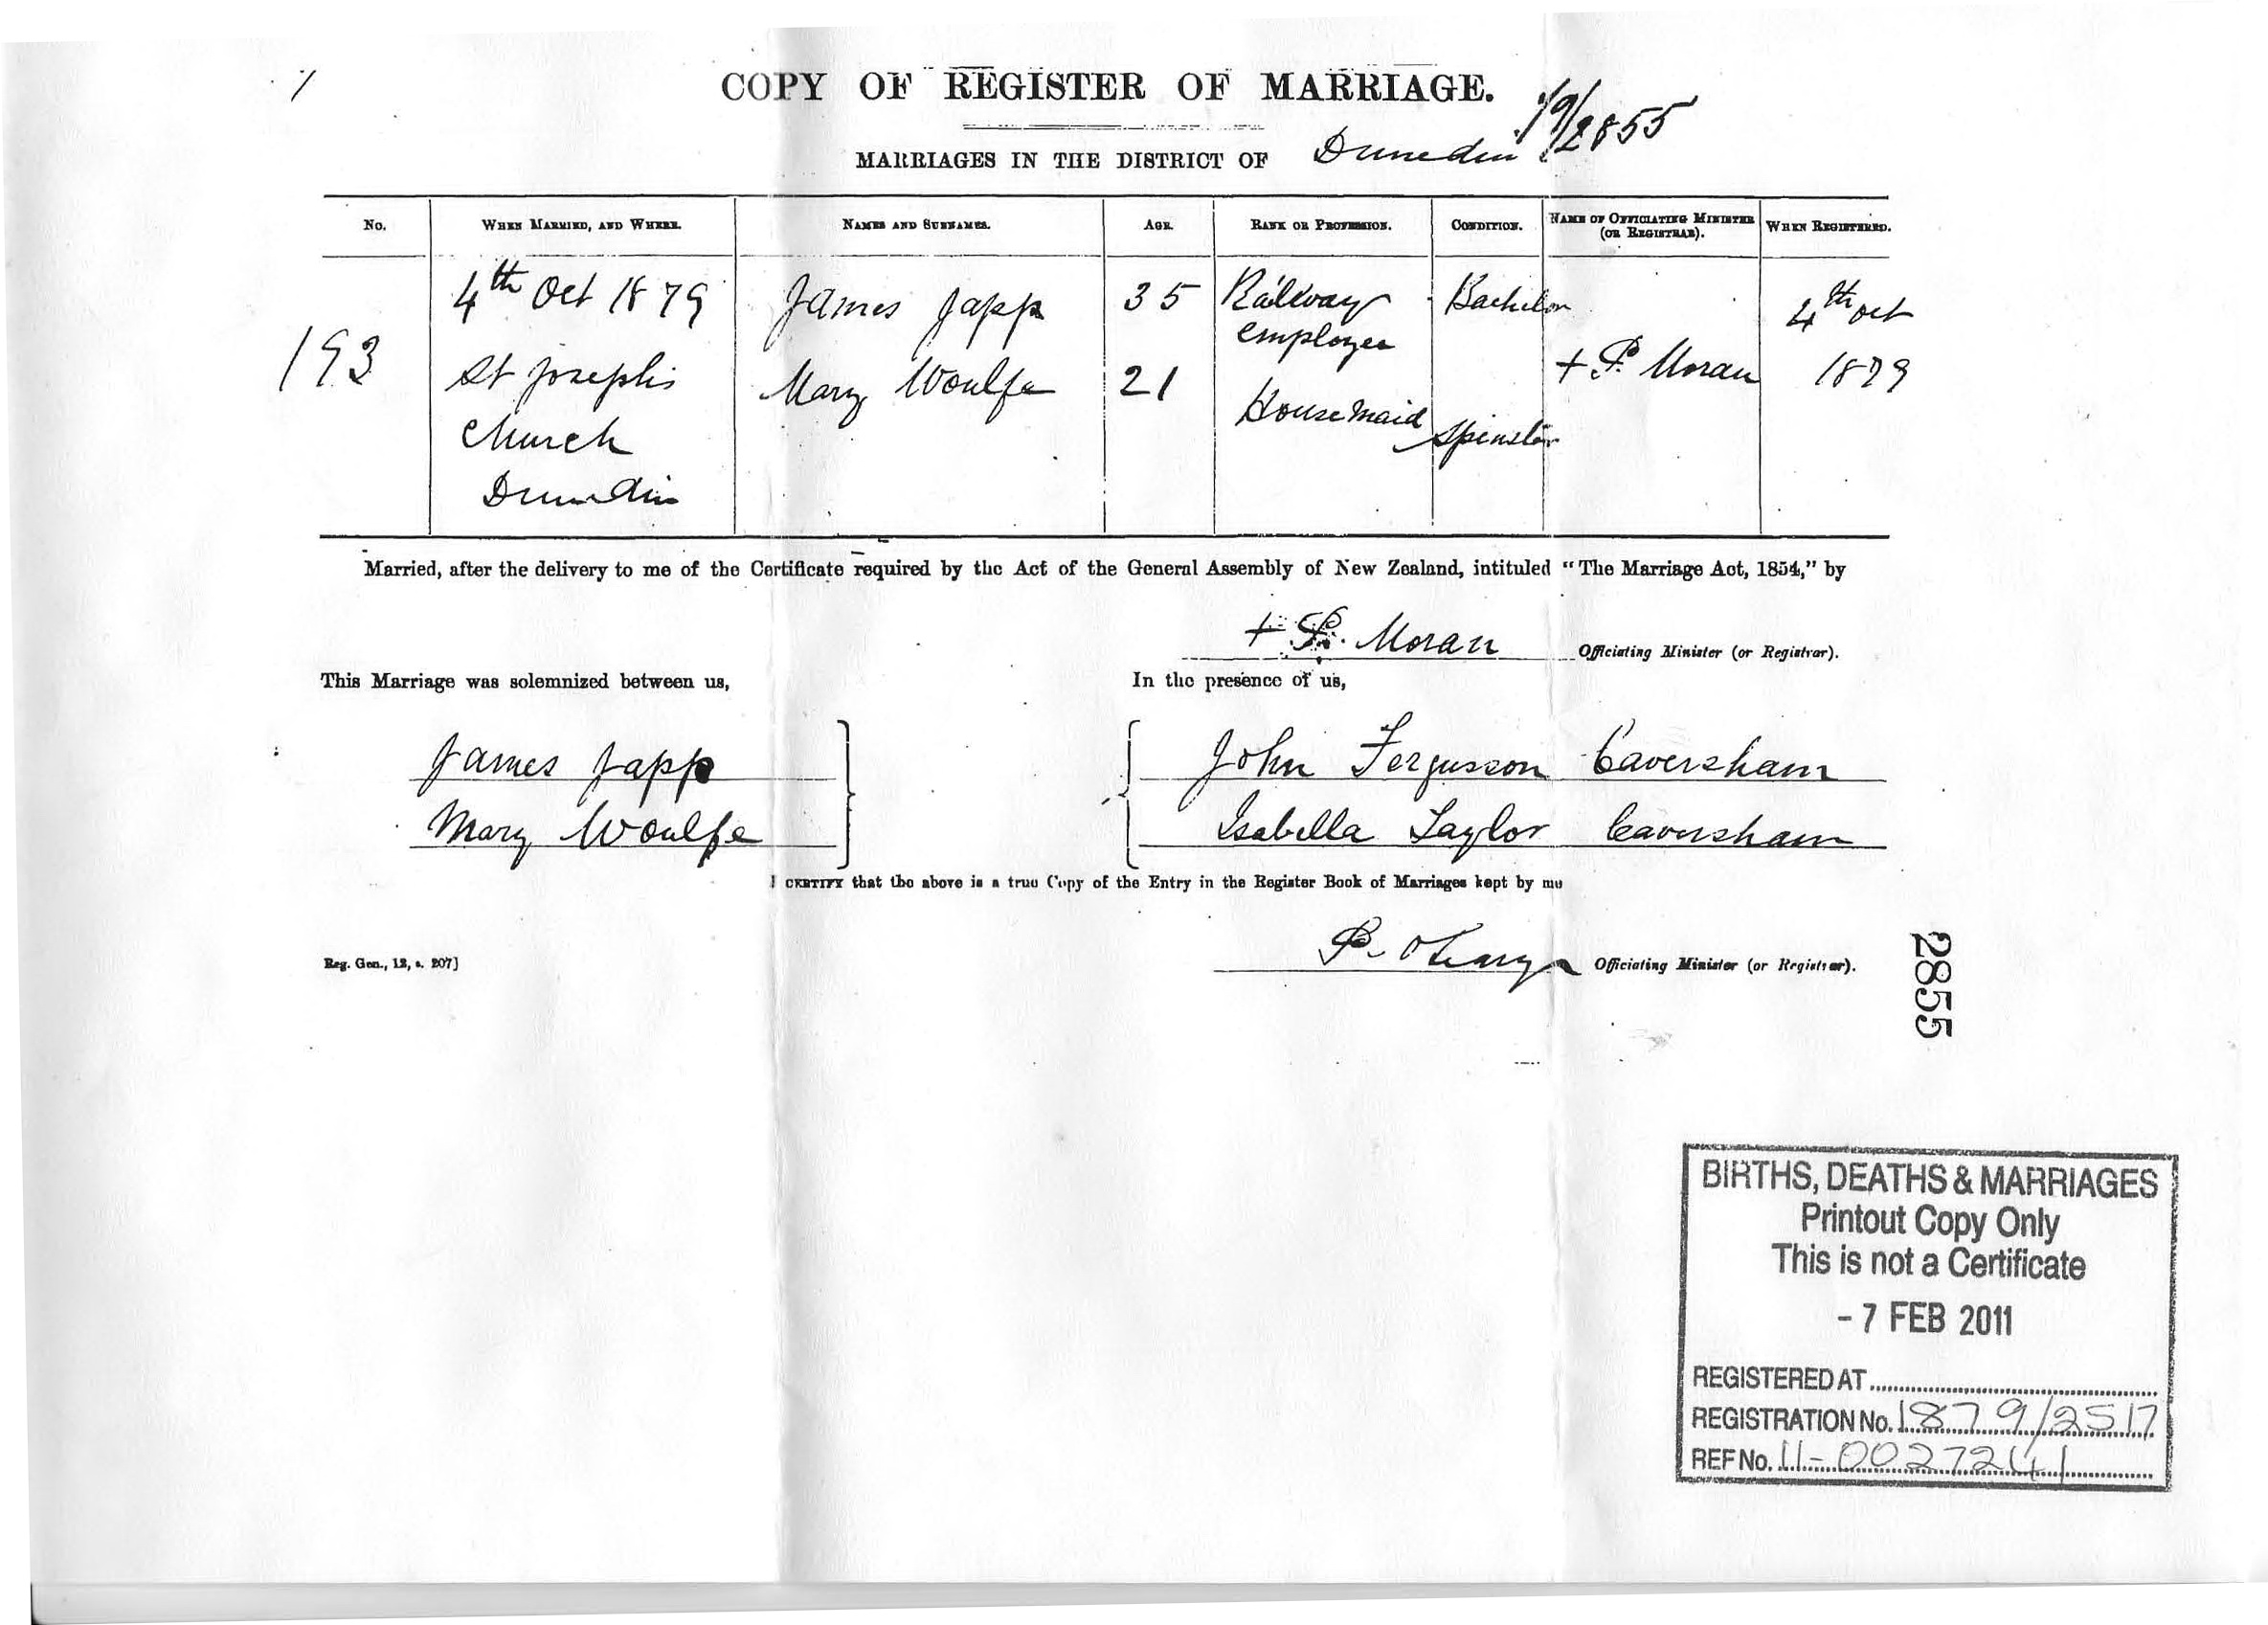 COPY OF REGISTER OF MARRIAGE.
79/2855
MARRIAGES IN THE DISTRICT OF Dunedin
No. WHEN MARRIED, AND WHERE. NAMES AND SURNAMES. AGE. RANK OR PROFESSION. CONDITION. NAME OF OFFICIATING MINISTER (OR REGISTRAR). WHEN REGISTERED.
193
4th Oct 1879
St Josephs
Church
Dunedin
James Japp
Mary Woulfe
35
21
Railway
employee
Housemaid
Bachelor
Spinster
+ P. Moran
4th Oct
1879
Married, after the delivery to me of the Certificate required by the Act of the General Assembly of New Zealand, intituled "The Marriage Act, 1854," by
+ P. Moran Officiating Minister (or Registrar).
This Marriage was solemnized between us,
In the presence of us,
James Japp
Mary Woulfe
John Fergusson Caversham
Isabella Taylor Caversham
I CERTIFY that the above is a true Copy of the Entry in the Register Book of Marriages kept by me
P. O'Leary Officiating Minister (or Registrar).
Reg. Gen., 12, s. 207]
2855
BIRTHS, DEATHS & MARRIAGES
Printout Copy Only
This is not a Certificate
- 7 FEB 2011
REGISTERED AT
REGISTRATION No. 1879/2517
REF No. 11-0027241